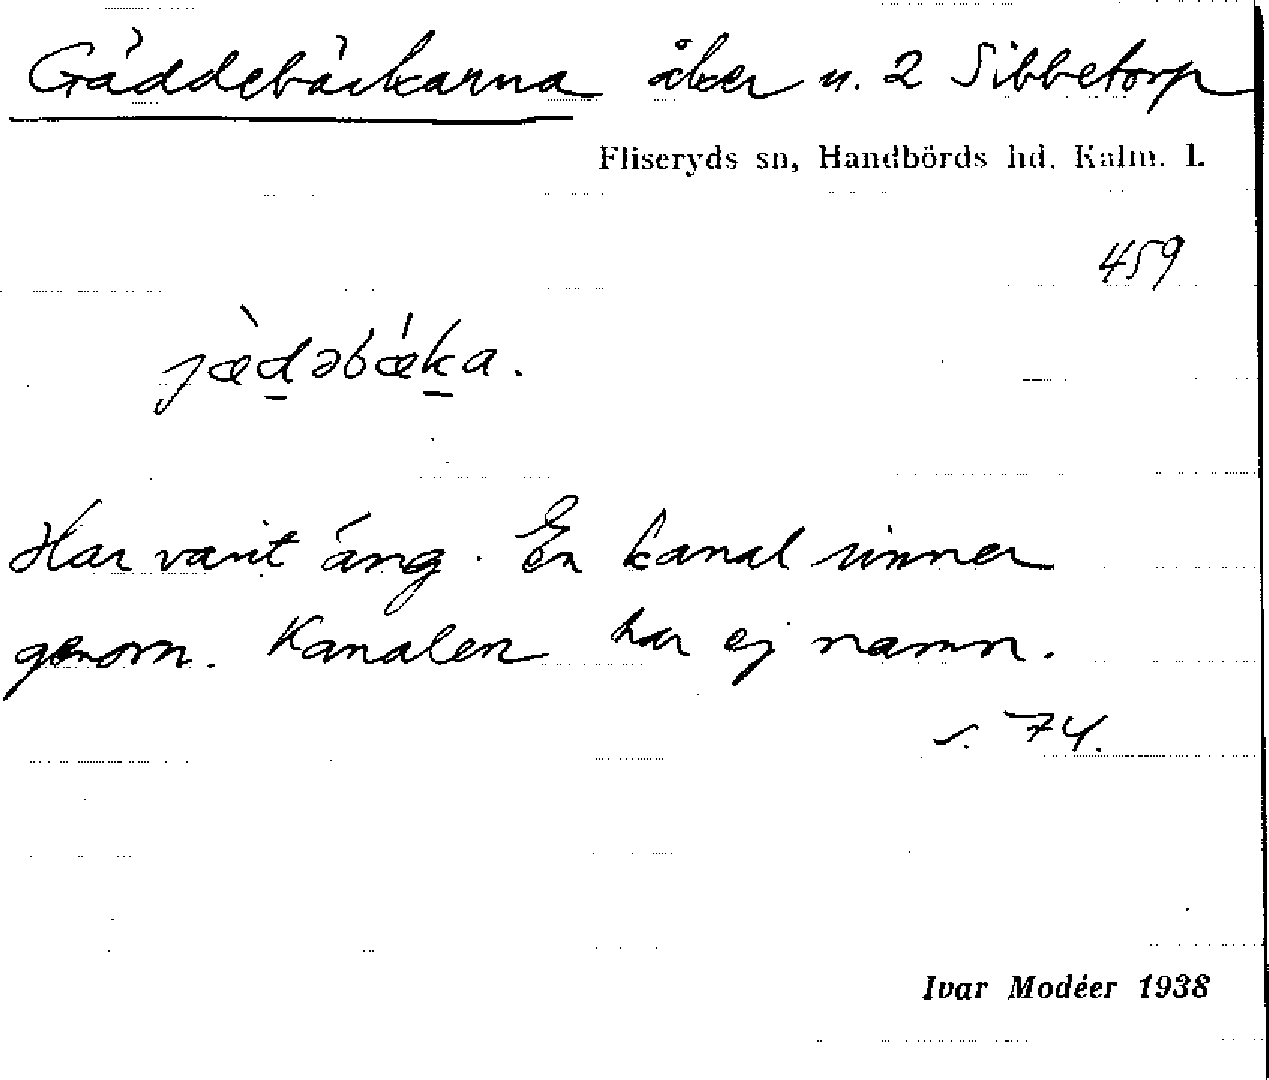 Gäddebäckarna åker u. 2 Sibbetorp
Fliseryds sn, Handbörds hd. Kalm. l.
459
jæ̀d̠əbǽk̠a.
Har varit äng. En kanal rinner
genom. Kanalen har ej namn.
s. 74.
Ivar Modéer 1938